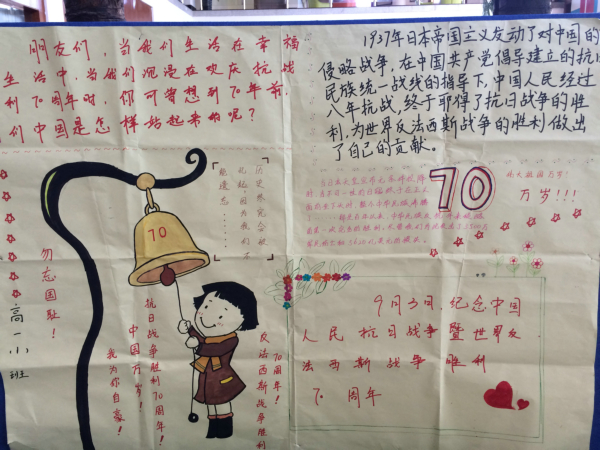 朋友们，当我们生活在幸福
生活中，当我们沉浸在欢庆抗战
利70周年时，你可曾想到70年前，
们中国是怎样站起来的呢？
1937年日本帝国主义发动了对中国的
侵略战争，在中国共产党倡导建立的抗日
民族统一战线的指导下，中国人民经过
八年抗战，终于取得了抗日战争的胜
利，为世界反法西斯战争的胜利做出
了自己的贡献。
历史终究会被
此起因为我们不
能遗忘
70
勿忘国耻！
高一小班
抗日战争胜利70周年！
中国万岁！
我为你自豪！
70周年！
反法西斯战争胜利
70
伟大祖国万岁！
万岁！！！
9月3日，纪念中国
人民抗日战争暨世界反
法西斯战争胜利
70周年